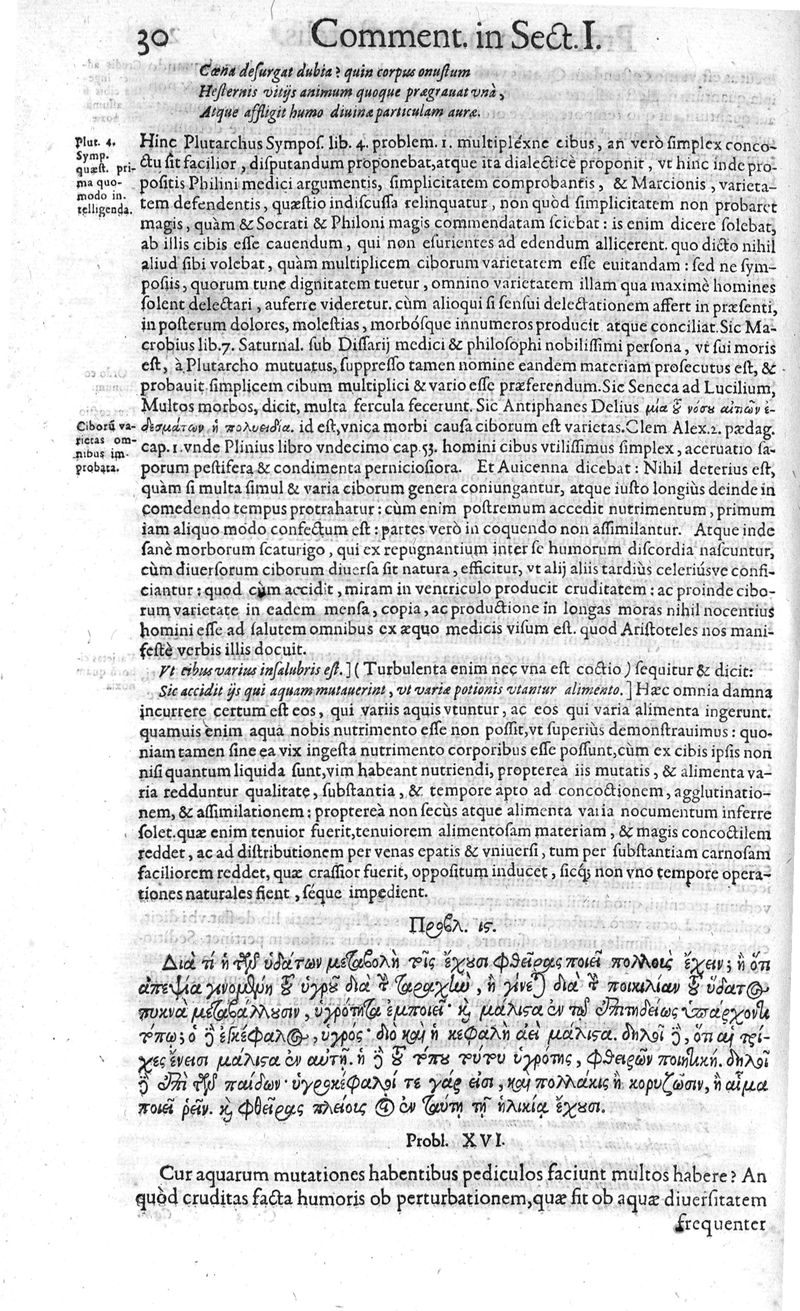 30 Comment. in Sect. I.
Cœna desurgat dubia? quin corpus onustum
Hesternis vitijs animum quoque prægrauat vnà,
Atque affligit humo diuinæ particulam auræ.
Plut. 4.
Symp.
quæst. pri-
ma quo-
modo in-
telligenda.
Hinc Plutarchus Sympos. lib. 4. problem. 1. multipléxne cibus, an verò simplex conco-
ctu sit facilior, disputandum proponebat, atque ita dialecticè proponit, vt hinc inde pro-
positis Philini medici argumentis, simplicitatem comprobantis, & Marcionis, varieta-
tem defendentis, quæstio indiscussa relinquatur, non quòd simplicitatem non probaret
magis, quàm & Socrati & Philoni magis commendatam sciebat: is enim dicere solebat,
ab illis cibis esse cauendum, qui non esurientes ad edendum allicerent. quo dicto nihil
aliud sibi volebat, quàm multiplicem ciborum varietatem esse euitandam: sed ne sym-
posiis, quorum tunc dignitatem tuetur, omnino varietatem illam qua maximè homines
solent delectari, auferre videretur. cùm alioqui si sensui delectationem affert in præsenti,
in posterum dolores, molestias, morbósque innumeros producit atque conciliat. Sic Ma-
crobius lib. 7. Saturnal. sub Dissarij medici & philosophi nobilissimi persona, vt sui moris
est, à Plutarcho mutuatus, suppresso tamen nomine eandem materiam prosecutus est, &
probauit simplicem cibum multiplici & vario esse præferendum. Sic Seneca ad Lucilium,
Multos morbos, dicit, multa fercula fecerunt. Sic Antiphanes Delius μία τ νόσου αἰτιῶν ἐ-
Ciborū va-
rietas om-
nibus im-
probata.
δεσμάτων ἡ πολυειδία. id est, vnica morbi causa ciborum est varietas. Clem Alex. 2. pædag.
cap. 1. vnde Plinius libro vndecimo cap. 53. homini cibus vtilissimus simplex, aceruatio sa-
porum pestifera & condimenta perniciosiora. Et Auicenna dicebat: Nihil deterius est,
quàm si multa simul & varia ciborum genera coniungantur, atque iusto longiùs deinde in
comedendo tempus protrahatur: cùm enim postremum accedit nutrimentum, primum
iam aliquo modo confectum est: partes verò in coquendo non assimilantur. Atque inde
sanè morborum scaturigo, qui ex repugnantium inter se humorum discordia nascuntur,
cùm diuersorum ciborum diuersa sit natura, efficitur, vt alij aliis tardiùs celeriúsve confi-
ciantur: quod cùm accidit, miram in ventriculo producit cruditatem: ac proinde cibo-
rum varietate in eadem mensa, copia, ac productione in longas moras nihil nocentius
homini esse ad salutem omnibus ex æquo medicis visum est. quod Aristoteles nos mani-
festè verbis illis docuit.
Vt cibus varius insalubris est.] (Turbulenta enim nec vna est coctio) sequitur & dicit:
Sic accidit ijs qui aquam mutauerint, vt variæ potionis vtantur alimento.] Hæc omnia damna
incurrere certum est eos, qui variis aquis vtuntur, ac eos qui varia alimenta ingerunt.
quamuis enim aqua nobis nutrimento esse non possit, vt superiùs demonstrauimus: quo-
niam tamen sine ea vix ingesta nutrimento corporibus esse possunt, cùm ex cibis ipsis non
nisi quantum liquida sunt, vim habeant nutriendi, propterea iis mutatis, & alimenta va-
ria redduntur qualitate, substantia, & tempore apto ad concoctionem, agglutinatio-
nem, & assimilationem: propterea non secùs atque alimenta varia nocumentum inferre
solet. quæ enim tenuior fuerit, tenuiorem alimentosam materiam, & magis concoctilem
reddet, ac ad distributionem per venas epatis & vniuersi, tum per substantiam carnosam
faciliorem reddet, quæ crassior fuerit, oppositum inducet, sicq; non vno tempore opera-
tiones naturales fient, séque impedient.
Προβλ. ις.
Διὰ τί ἡ τῶν ὑδάτων μεταβολὴ τοῖς ἔχουσι φθεῖρας ποιεῖ πολλοὺς ἔχειν; ἢ ὅτι
ἀπεψία γινομένη τοῦ ὑγροῦ διὰ τὴν ταραχὴν, ἣ γίνεται διὰ τὴν ποικιλίαν τοῦ ὕδατος
πυκνὰ μεταβάλλουσιν, ὑγρότητα ἐμποιεῖ· καὶ μάλιστα ἐν τῷ ἐπιτηδείως ὑπάρχοντι
τόπῳ; ὁ δὲ ἐγκέφαλος, ὑγρός· διὸ καὶ ἡ κεφαλὴ ἀεὶ μάλιστα. δηλοῖ δὲ, ὅτι αἱ τρί-
χες ἔνεισι μάλιστα ἐν αὐτῇ. ἡ δὲ τοῦ τόπου τούτου ὑγρότης, φθειρῶν ποιητική. δηλοῖ
δὲ ἐπὶ τῶν παίδων· ὑγροκέφαλοί τε γάρ εἰσι, καὶ πολλάκις ἢ κορυζῶσιν, ἢ αἷμα
ποιεῖ ῥεῖν. καὶ φθεῖρας πλείους οἱ ἐν ταύτῃ τῇ ἡλικίᾳ ἔχουσι.
Probl. XVI.
Cur aquarum mutationes habentibus pediculos faciunt multos habere? An
quòd cruditas facta humoris ob perturbationem, quæ fit ob aquæ diuersitatem
frequenter